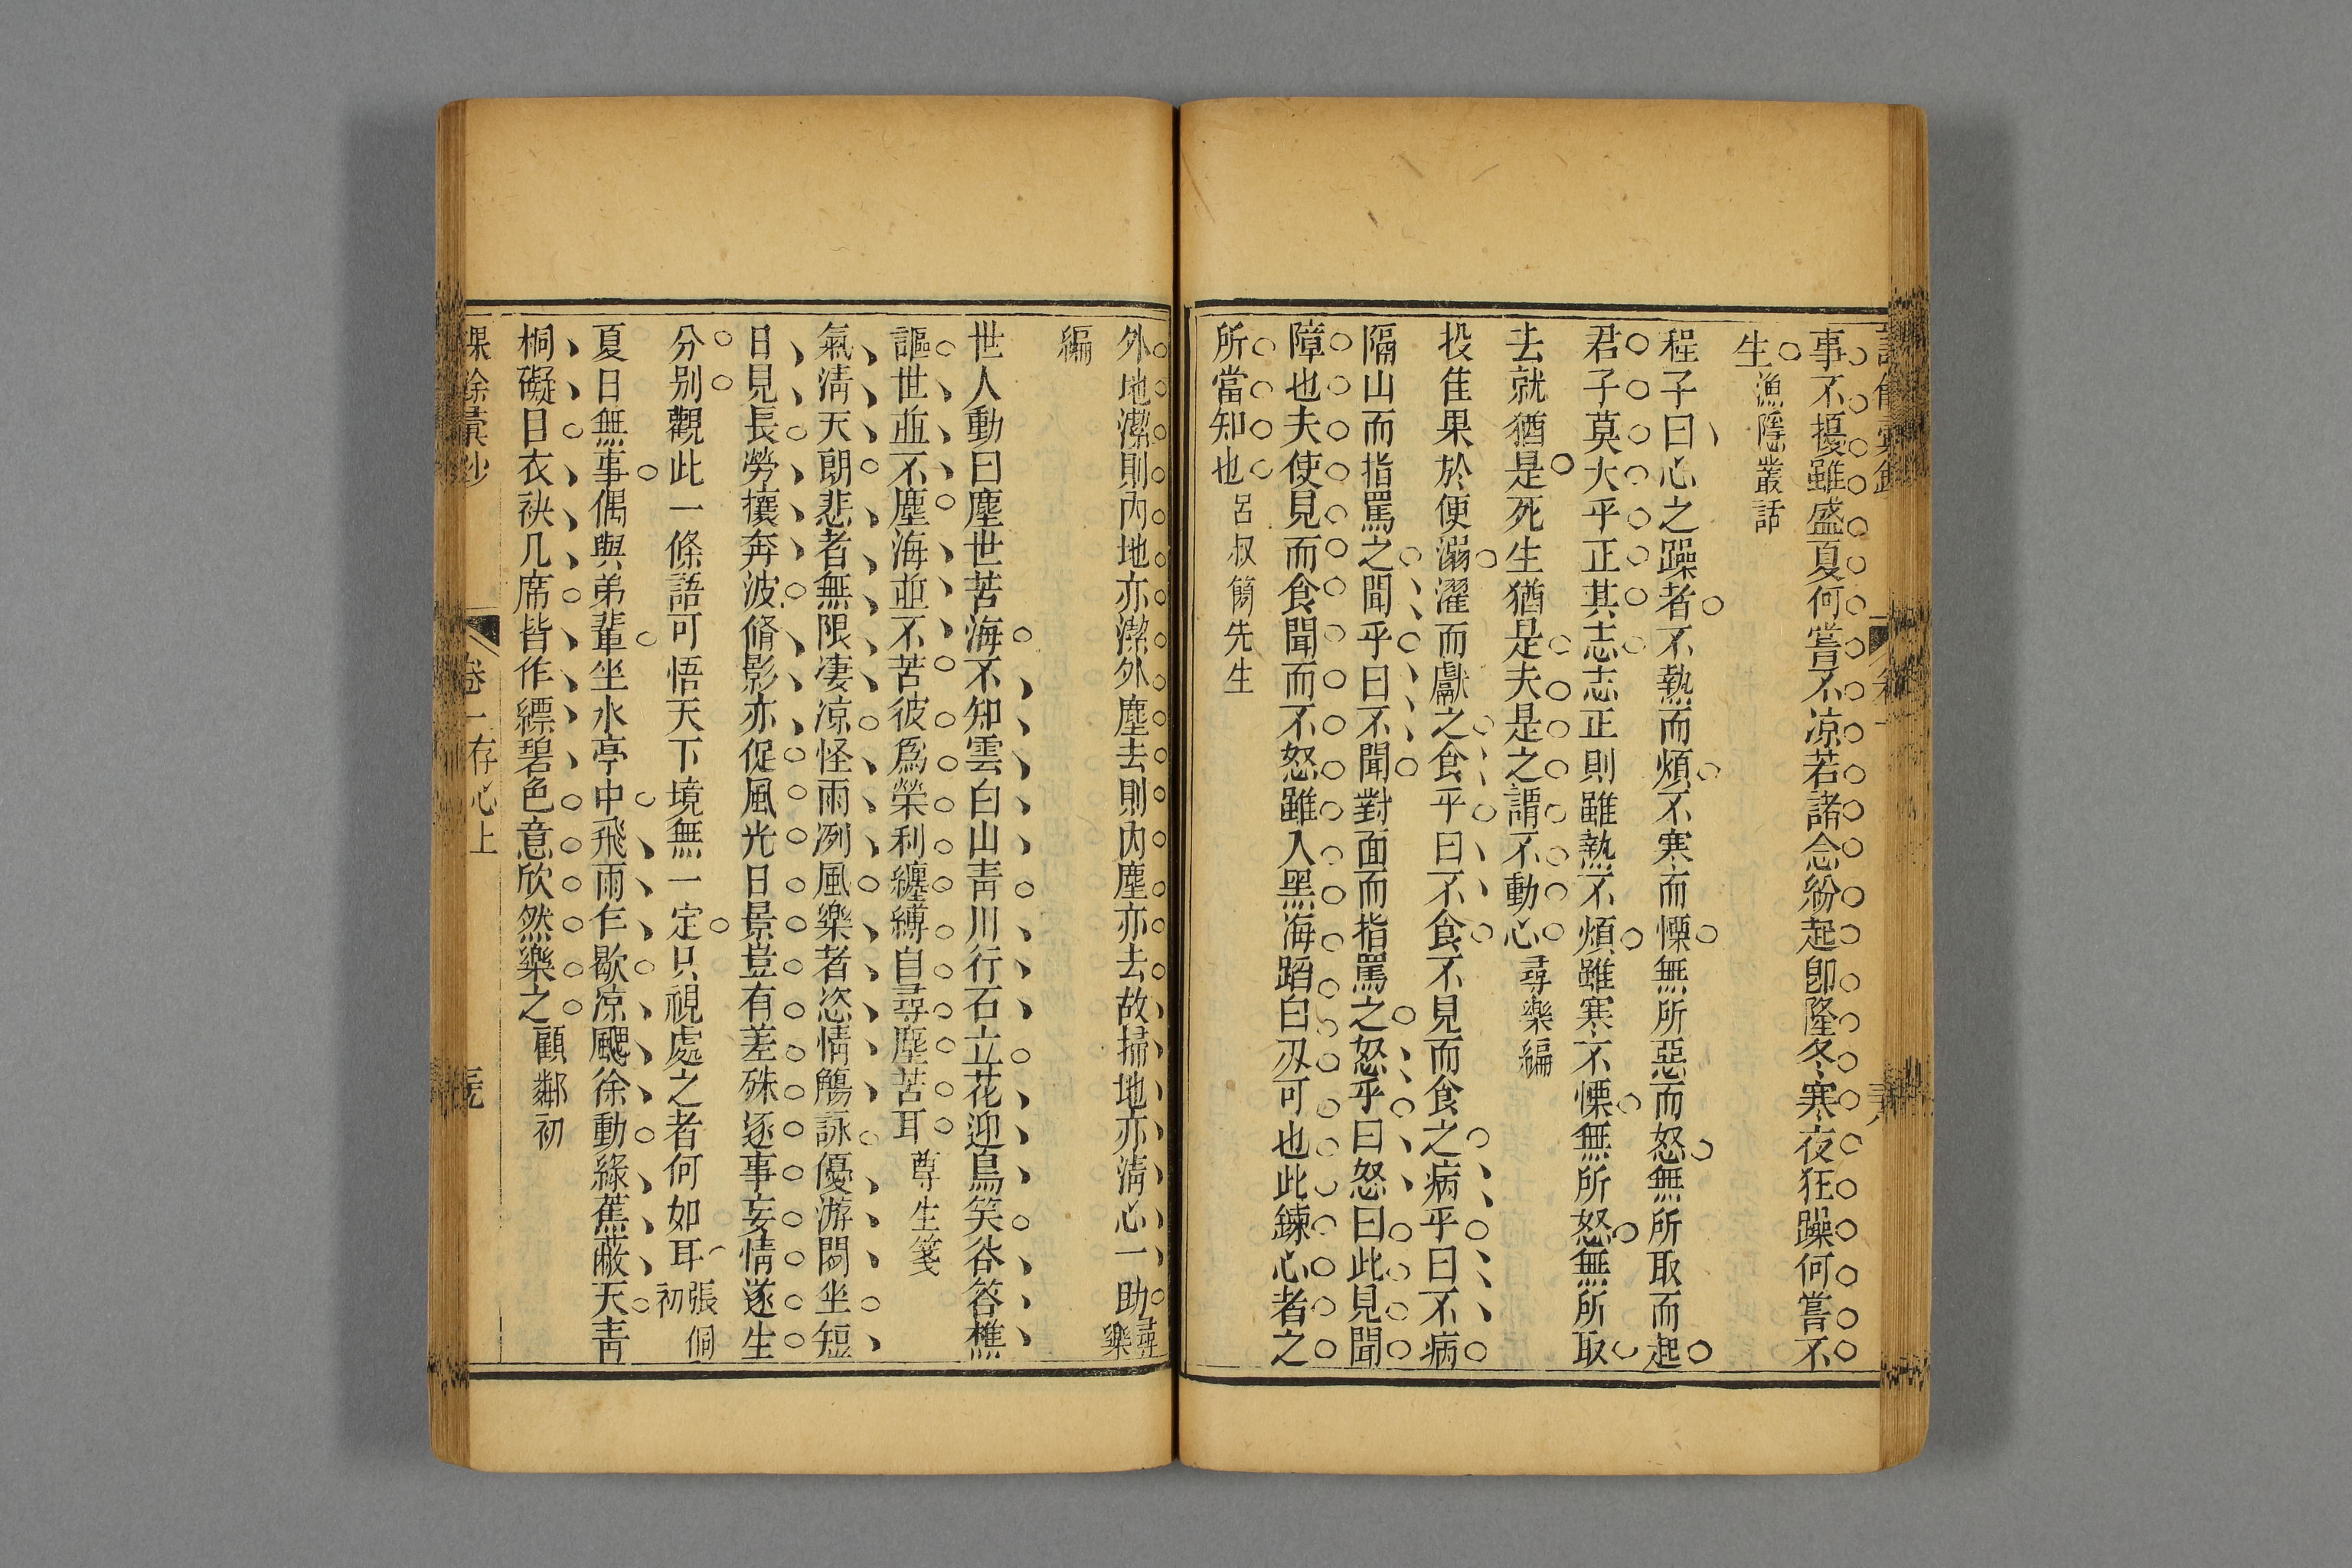 事不擾雖盛夏何嘗不凉若諸念紛起卽隆冬寒夜狂躁何嘗不
生 漁隱叢話
程子曰心之躁者不熱而煩不寒而慄無所惡而怒無所取而起
君子莫大乎正其志志正則雖熱不煩雖寒不慄無所怒無所取
去就猶是死生猶是夫是之謂不動心 尋樂編
投佳果於便溺濯而獻之食乎曰不食不見而食之病乎曰不病
隔山而指罵之聞乎曰不聞對面而指罵之怒乎曰怒曰此見聞
障也夫使見而食聞而不怒雖入黑海蹈白刃可也此鍊心者之
所當知也 呂叔簡先生
外地潔則內地亦潔外塵去則內塵亦去故掃地亦淸心一助 尋樂
編
世人動曰塵世苦海不知雲白山靑川行石立花迎鳥笑谷答樵
謳世並不塵海並不苦彼爲榮利纏縛自尋塵苦耳 尊生箋
氣淸天朗悲者無限凄凉怪雨冽風樂者恣情觴詠優游閟坐短
日見長勞攘奔波脩影亦促風光日景豈有差殊逐事妄情遂生
分别觀此一條語可悟天下境無一定只視處之者何如耳 張侗初
夏日無事偶與弟輩坐水亭中飛雨乍歇凉颸徐動綠蕉蔽天靑
桐礙日衣袂几席皆作縹碧色意欣然樂之 顧鄰初
課餘彙鈔 卷一存心上